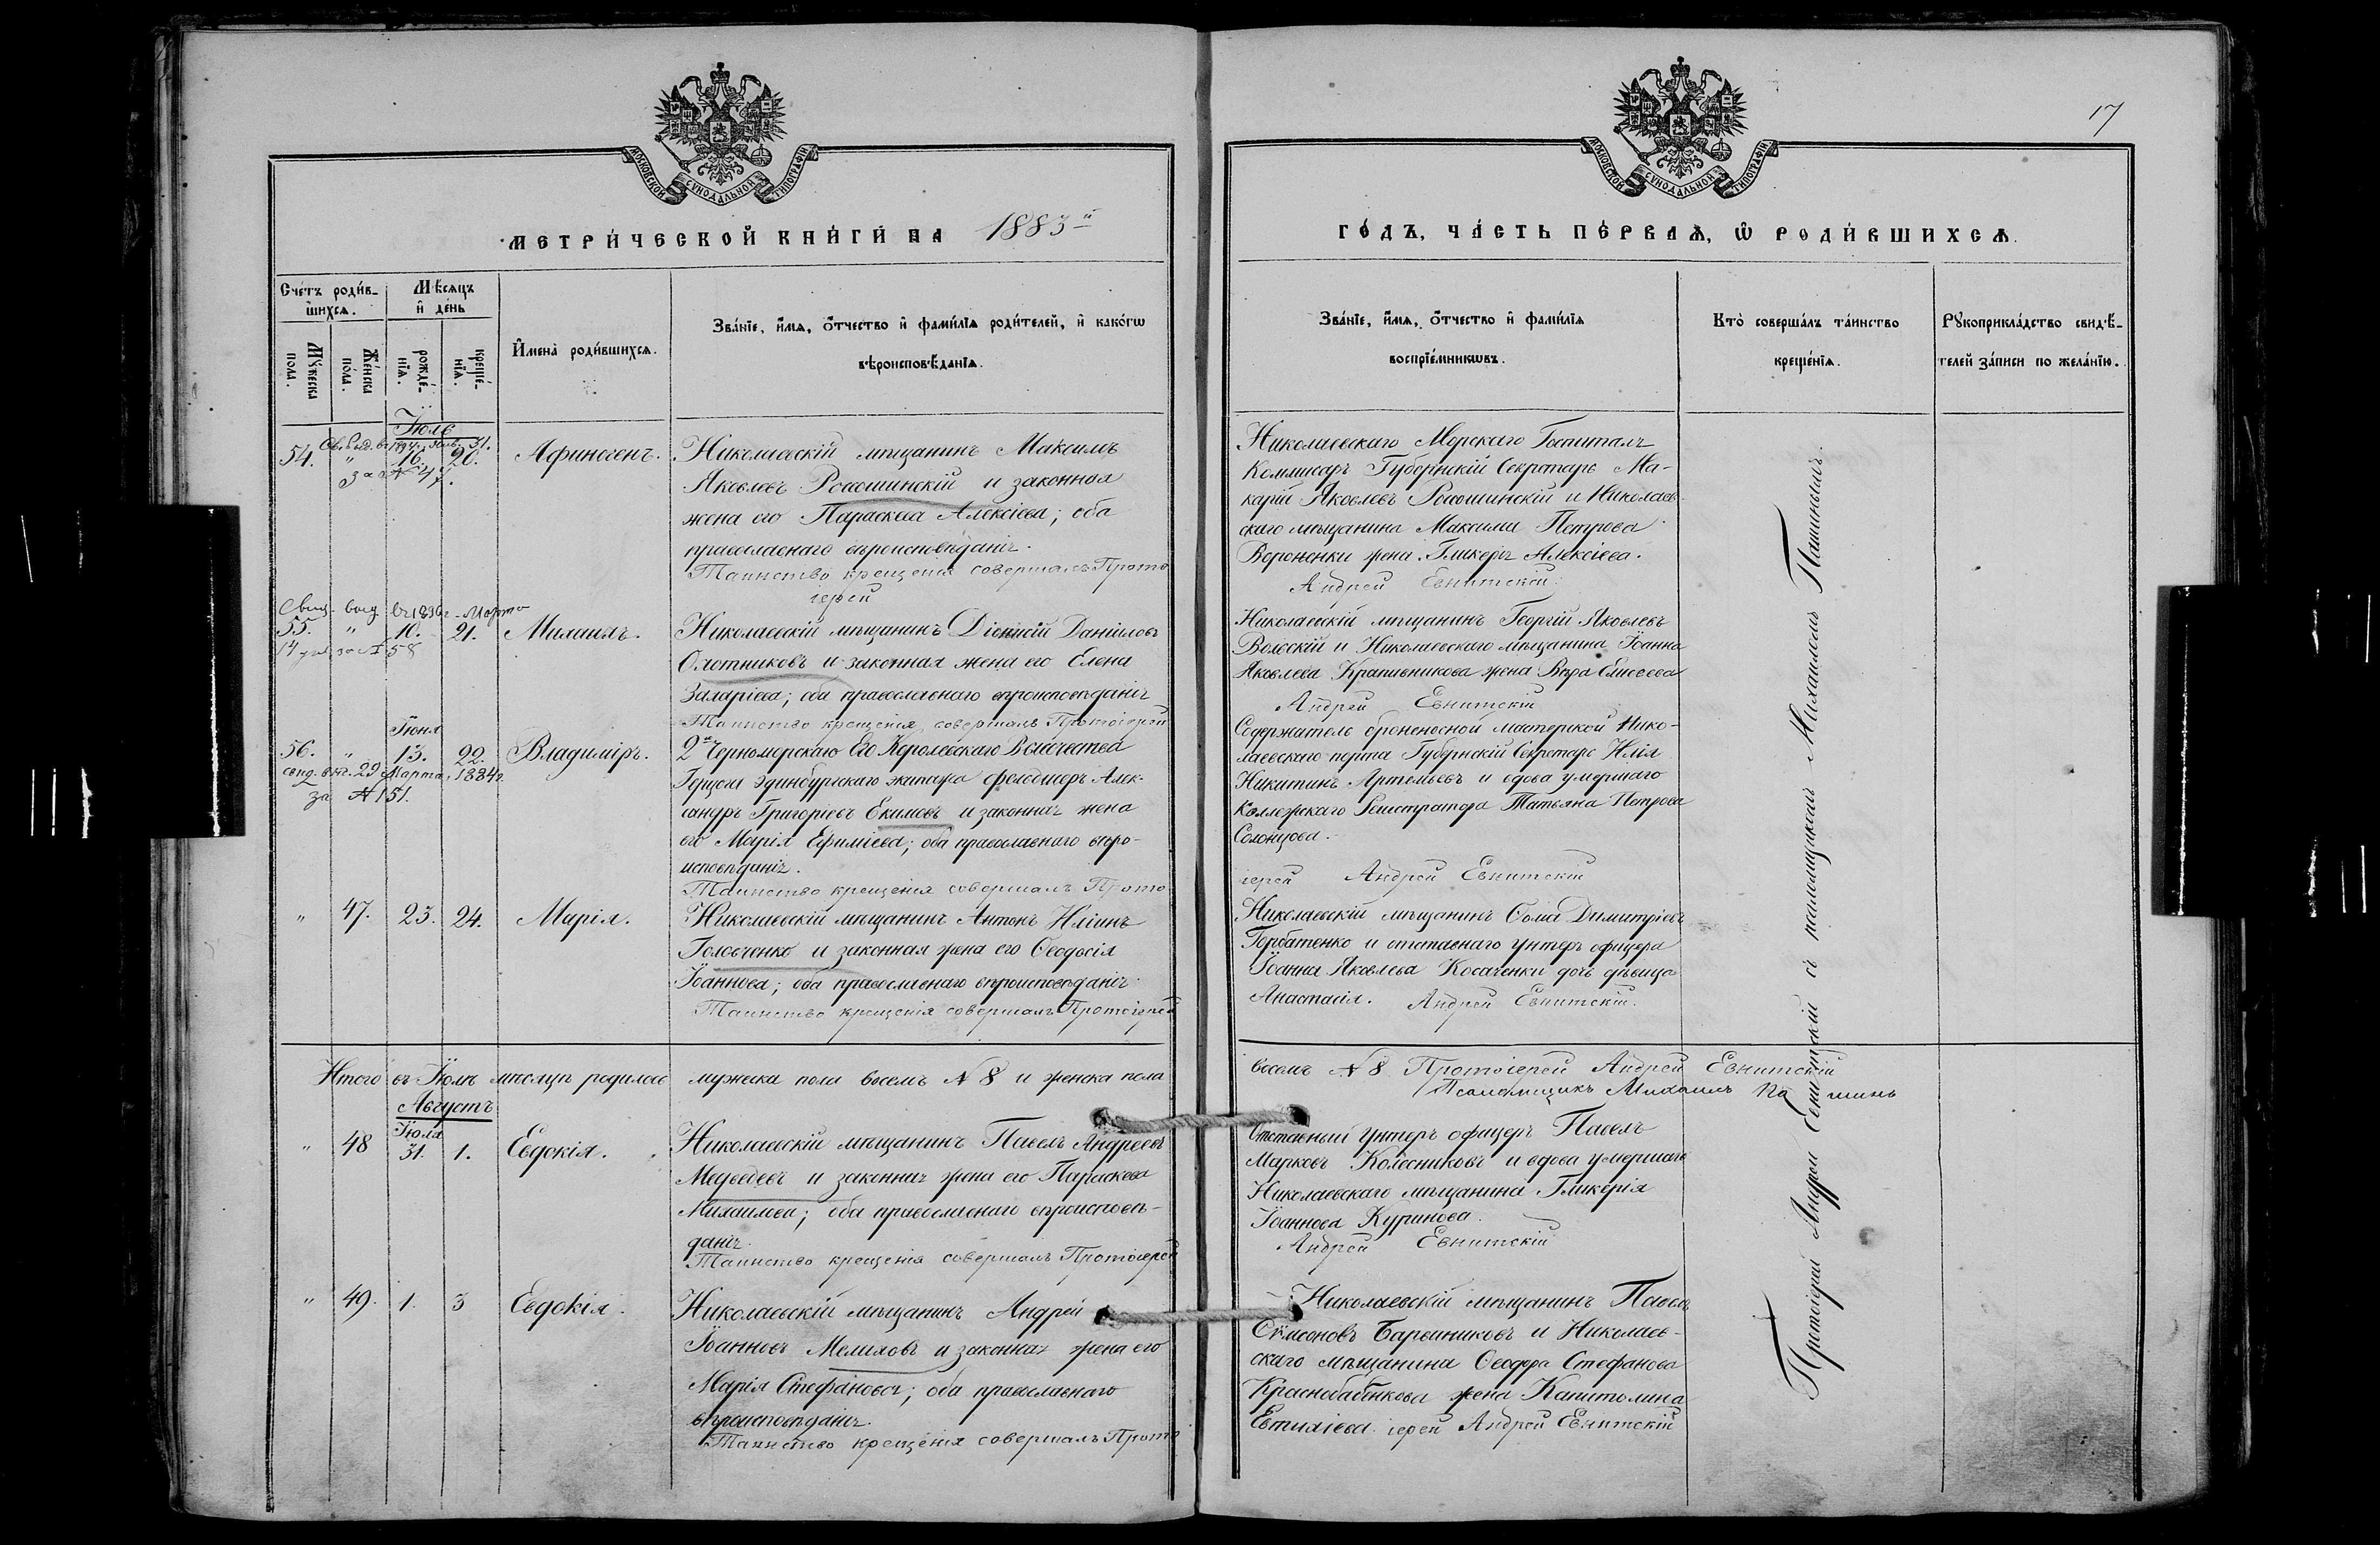 МОСКОВСКОЙ СѴНОДАЛЬНОЙ ТИПОГРАФІИ
МЕТРИ́ЧЕСКОЙ КНИ́ГИ НА 1883й
Сче́тъ роди́в-
шихся.
Мѣсяцъ
и҆ де́нь
Мꙋ́жеска
пола.
Же́нска
по́ла.
рожде́-
нїя.
креще́-
нїя.
И҆мена̀ роди́вшихся.
Зва́нїе, и҆́мя, о҆́тчество и҆ фами́лїя роди́телей, и҆ како́гѡ
вѣроисповѣ́данїя.
Іюль
54. " 16. 20. Афиногенъ.
за № 47.
Николаевскій мѣщанинъ Максимъ
Яковлевъ Росошинскій и законная
жена его Параскева Алексіева; оба
православнаго вѣроисповѣданія.
Таинство крещенія совершалъ Прото
іерей
55. " 10. 21. Михаилъ.
за № 58
Николаевскій мѣщанинъ Діонисій Даніиловъ
Охотниковъ и законная жена его Елена
Захаріева; оба православнаго вѣроисповѣданія
Таинство крещенія совершалъ Протоіерей
Іюня
56. " 13. 22. Владиміръ.
29 Марта 1884 г.
за № 151.
2го Черноморскаго Его Королевскаго Величества
Герцога Эдинбургскаго экипажа фельдшеръ Алек-
сандръ Григоріевъ Екимовъ и законная жена
его Марія Ефиміева; оба православнаго вѣро-
исповѣданія.
Таинство крещенія совершалъ Прото
" 47. 23. 24. Марія.
Николаевскій мѣщанинъ Антонъ Иліинъ
Головченко и законная жена его Ѳеодосія
Іоаннова; оба православнаго вѣроисповѣданія.
Таинство крещенія совершалъ Протоіерей
Итого въ Іюлѣ мѣсяцѣ родилось мужеска пола восемь № 8 и женска пола
Августъ
Іюля
" 48 31. 1. Евдокія.
Николаевскій мѣщанинъ Павелъ Андреевъ
Медведевъ и законная жена его Параскева
Михаилова; оба православнаго вѣроисповѣ-
данія.
Таинство крещенія совершалъ Протоіерей
" 49. 1. 3 Евдокія.
Николаевскій мѣщанинъ Андрей
Іоанновъ Мелиховъ и законная жена его
Марія Стефановa; оба православнаго
вѣроисповѣданія.
Таинство крещенія совершалъ Прото
17
МОСКОВСКОЙ СѴНОДАЛЬНОЙ ТИПОГРАФІИ
ГО́ДЪ, ЧА́СТЬ ПЕ́РВАѦ, Ѡ҆ РОДИ́ВШИХСѦ.
Зва́нїе, и҆́мя, о҆́тчество и҆ фами́лїя
воспрїе́мникѡвъ.
Кто̀ соверша́лъ та́инство
креще́нїя.
Рꙋкоприкла́дство свидѣ́-
телей за́писи по жела́нїю.
Николаевскаго Морскаго Госпиталя
Коммисаръ Губернскій Секретарь Ма-
карій Яковлевъ Росошинскій и Николаев-
скаго мѣщанина Максима Петрова
Вороненки жена Гликерія Алексіева.
Андрей Евнитскій
Николаевскій мѣщанинъ Георгій Яковлевъ
Вольскій и Николаевскаго мѣщанина Іоанна
Яковлева Крапивникова жена Вѣра Елисеева
Андрей Евнитскій
Содержатель броненосной мастерской Нико-
лаевскаго порта Губернскій Секретарь Илія
Никитинъ Артемьевъ и вдова умершаго
Коллежскаго Регистратора Татьяна Петрова
Солонцова.
іерей Андрей Евнитскій
Николаевскій мѣщанинъ Ѳома Димитріевъ
Горбатенко и отставнаго унтеръ офицера
Іоанна Яковлева Косаченки дочь дѣвица
Анастасія. Андрей Евнитскій.
восемь № 8 Протоіерей Андрей Евнитскій
Псаломщикъ Михаилъ Пашинъ
Отставный унтеръ офицеръ Павелъ
Марковъ Колесниковъ и вдова умершаго
Николаевскаго мѣщанина Гликерія
Іоаннова Куринова.
Андрей Евнитскій
Николаевскій мѣщанинъ Павелъ
Сѵмеоновъ Барвинниковъ и Николаев-
скаго мѣщанина Ѳеодора Стефанова
Краснобаенкова жена Капитолина
Евтихіева іерей Андрей Евнитскій
Протоіерей Андрей Евнитскій съ псаломщикомъ Михаиломъ Пашинымъ.